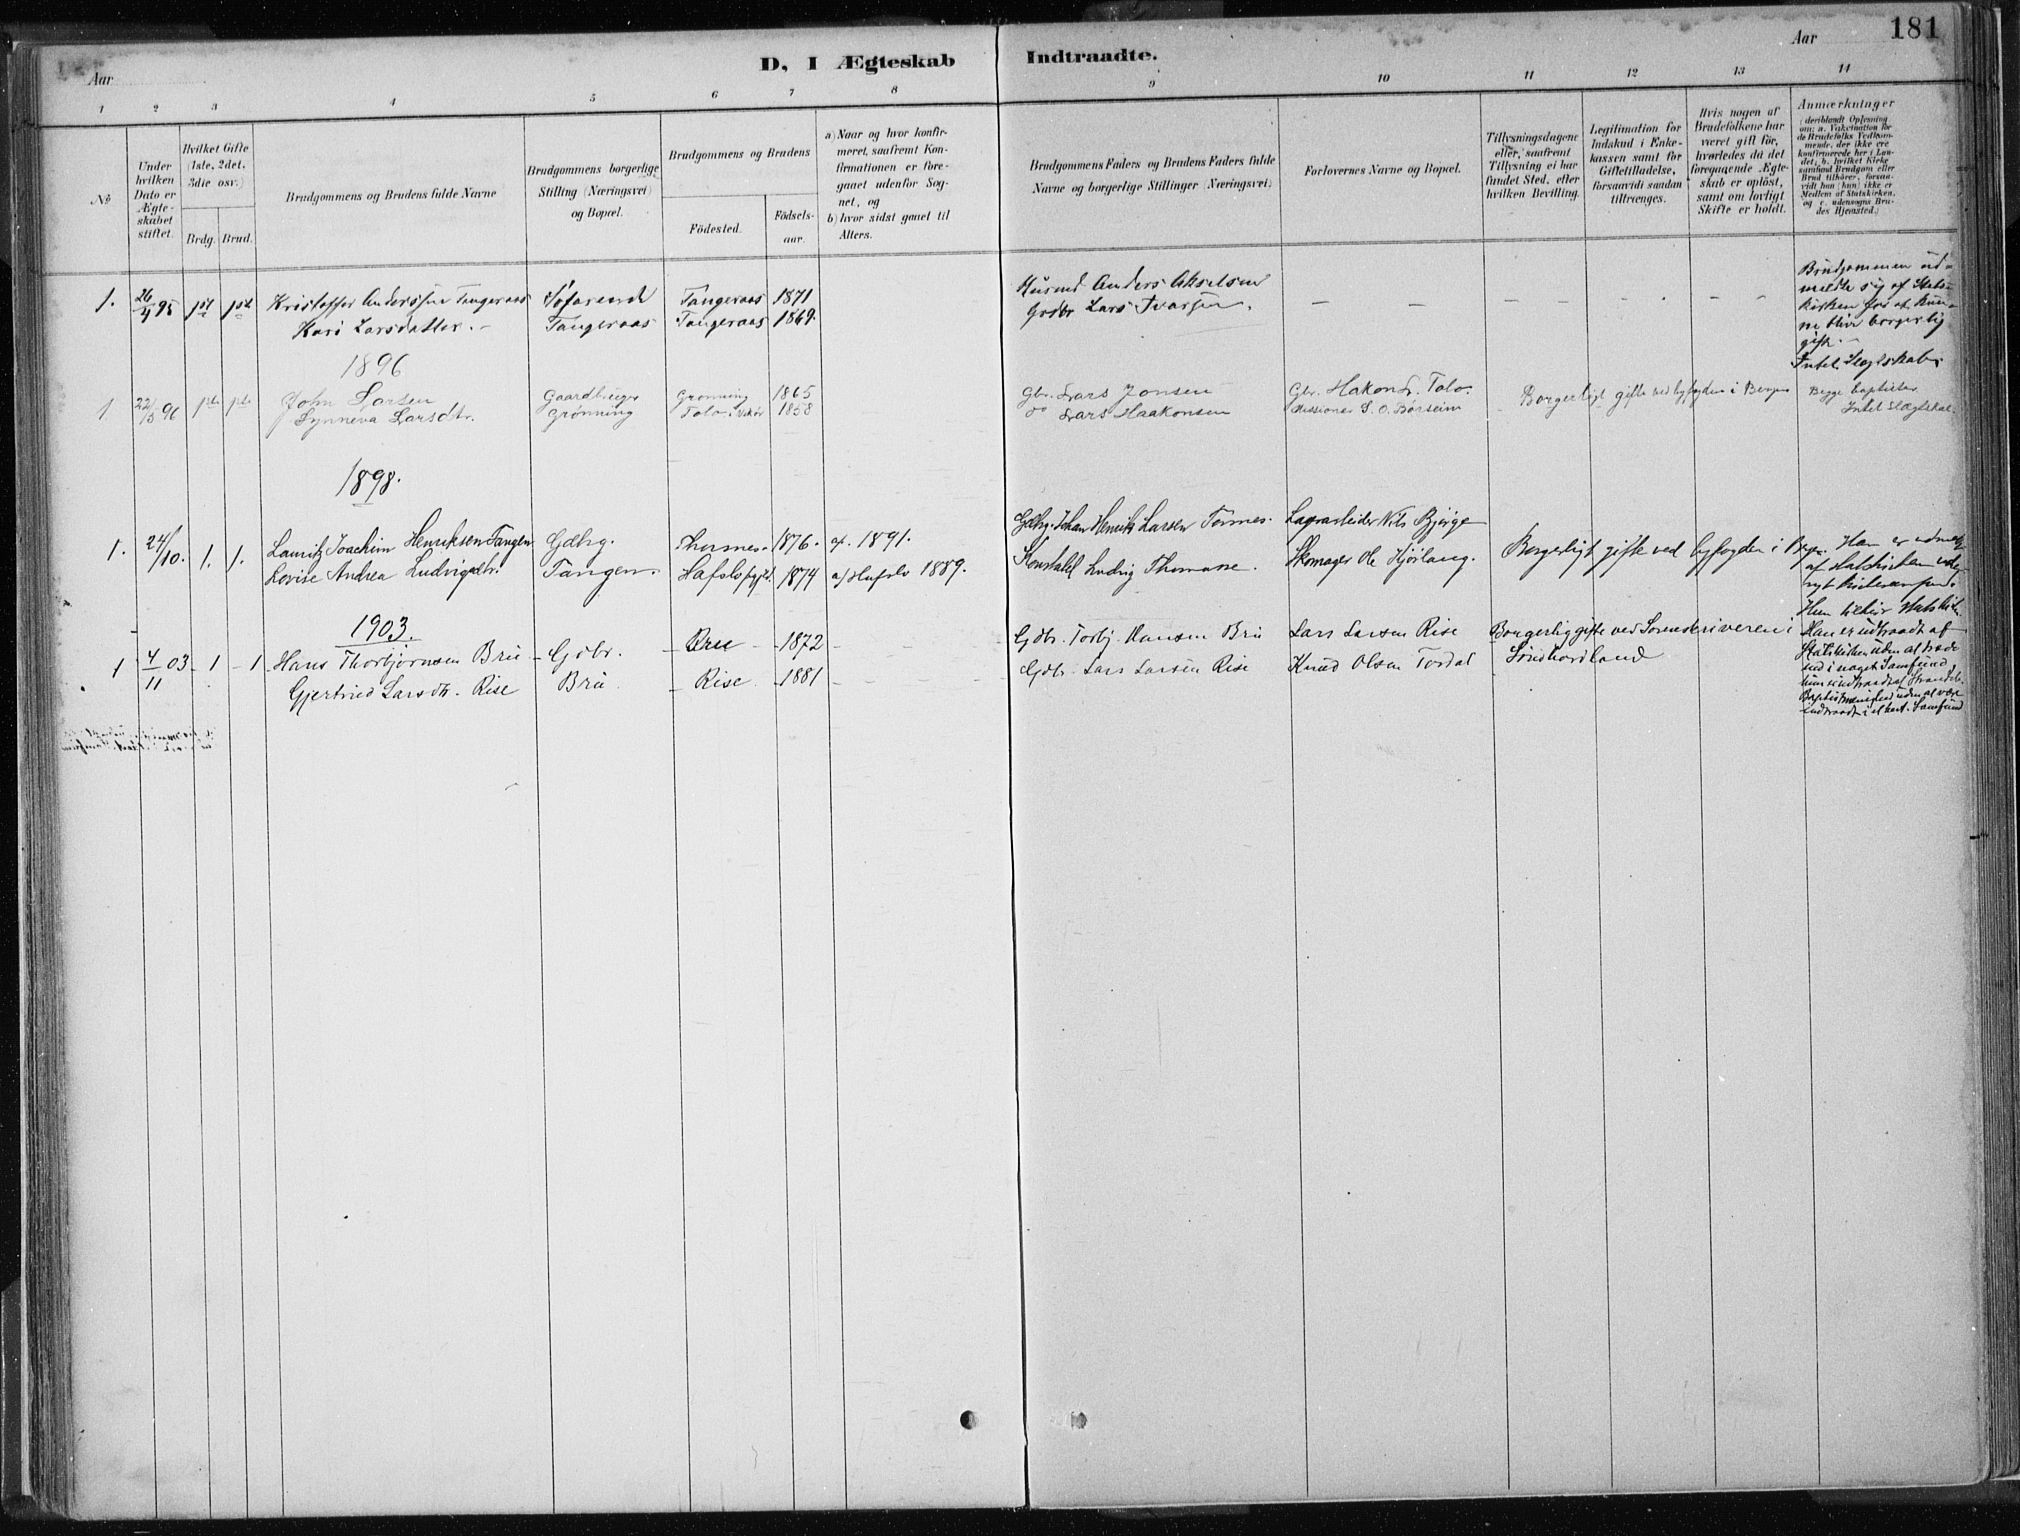 181
D, I Ægteskab Indtraadte.
Aar
Aar
1 2 3 4 5 6 7 8 9 10 11 12 13 14
№
Under hvilken Dato er Ægteskabet stiftet.
Hvilket Gifte (1ste, 2det, 3die osv.)
Brdg. Brud.
Brudgommens og Brudens fulde Navne
Brudgommens borgerlige Stilling (Næringsvei) og Bopæl.
Brudgommens og Brudens
Födested. Födselsaar.
a) Naar og hvor konfirmeret, saafremt Konfirmationen er foregaaet udenfor Sognet, og
b) hvor sidst gaaet til Alters.
Brudgommens Faders og Brudens Faders fulde Navne og borgerlige Stillinger (Næringsvei)
Forlovernes Navne og Bopæl.
Tillysningsdagene eller, saafremt Tillysning ei har fundet Sted, efter hvilken Bevilling.
Legitimation for Indskud i Enkekassen samt for Giftetilladelse, forsaavidt saadan tiltrænges.
Hvis nogen af Brudefolkene har været gift för, hvorledes da det foregaaende Ægteskab er oplöst, samt om lovligt Skifte er holdt.
Anmærkninger (deriblandt Oplysning om: a. Vakcination for de Brudefolks Vedkommende, der ikke ere konfirmerede her i Landet; b. hvilket Kirkesamfund Brudgom eller Brud tilhörer, forsaavidt han (hun) ikke er Medlem af Statskirken, og c. udensogns Brudes Hjemsted.)
1. 26/4 95 1ste 1ste Kristoffer Anderssen Tangeraas Søfarende Tangeraas 1871 Husmd Anders Akselsen – – – – –
Kari Larsdatter. Tangeraas Tangeraas 1869. Grdbr Lars Ivarsen.
Brudgommen udmeldte sig af Statskirken for at kunne blive borgerlig gift.
Intet Slegtskab.
1896
1 22/5 96 1ste 1ste John Larsen Gaardbruger Grønning 1865 Gbr. Lars Jonsen Gbr. Hakon L. Tolo. Borgerligt gifte ved byfogden i Bergen Begge baptister
Synneva Larsdtr. Grønning Tolo i Vikør 1858 do Lars Haakonsen Missionær S. O. Børseim Intet Slægtskab.
1898.
1. 24/10. 1. 1. Lauritz Joachim Henriksen Tangen Gdbrg. Thosnes. 1876. af. 1891. Gdbrg. Johan Henrik Larsen Tornes. Lagrarbeider Nils Bjørge
Lovise Andrea Ludvigsdtr. Tangen. Hafslo pgjld. 1874 af Hafslo 1889. Konstabel Ludvig Thomasse. Skomager Ole Kjørlaug. Borgerligt gifte ved byfogden i Bergen.
Han er udmeldt af Statskirken uden nyt kirkesamfund.
Hun tilhører Statskirken
1903.
1 4/11 03 1 1 Hans Thorbjørnsen Bru Gdbr. Bru 1872 – – – Gdbr. Torbj. Hansen Bru Lars Larsen Rise Borgerlig gifte ved Sorenskriveren i
Gjertrud Larsdtr. Rise Bru Rise 1881 – – – Gdbr. Lars Larsen Rise Knud Olsen Tordal Søndhordland
Han er udtraadt af Statskirken uden at træde ind i noget Samfund, hun er udtraadt af Strandeb. Baptistmenighed uden at være indtraadt i et kert. Samfund